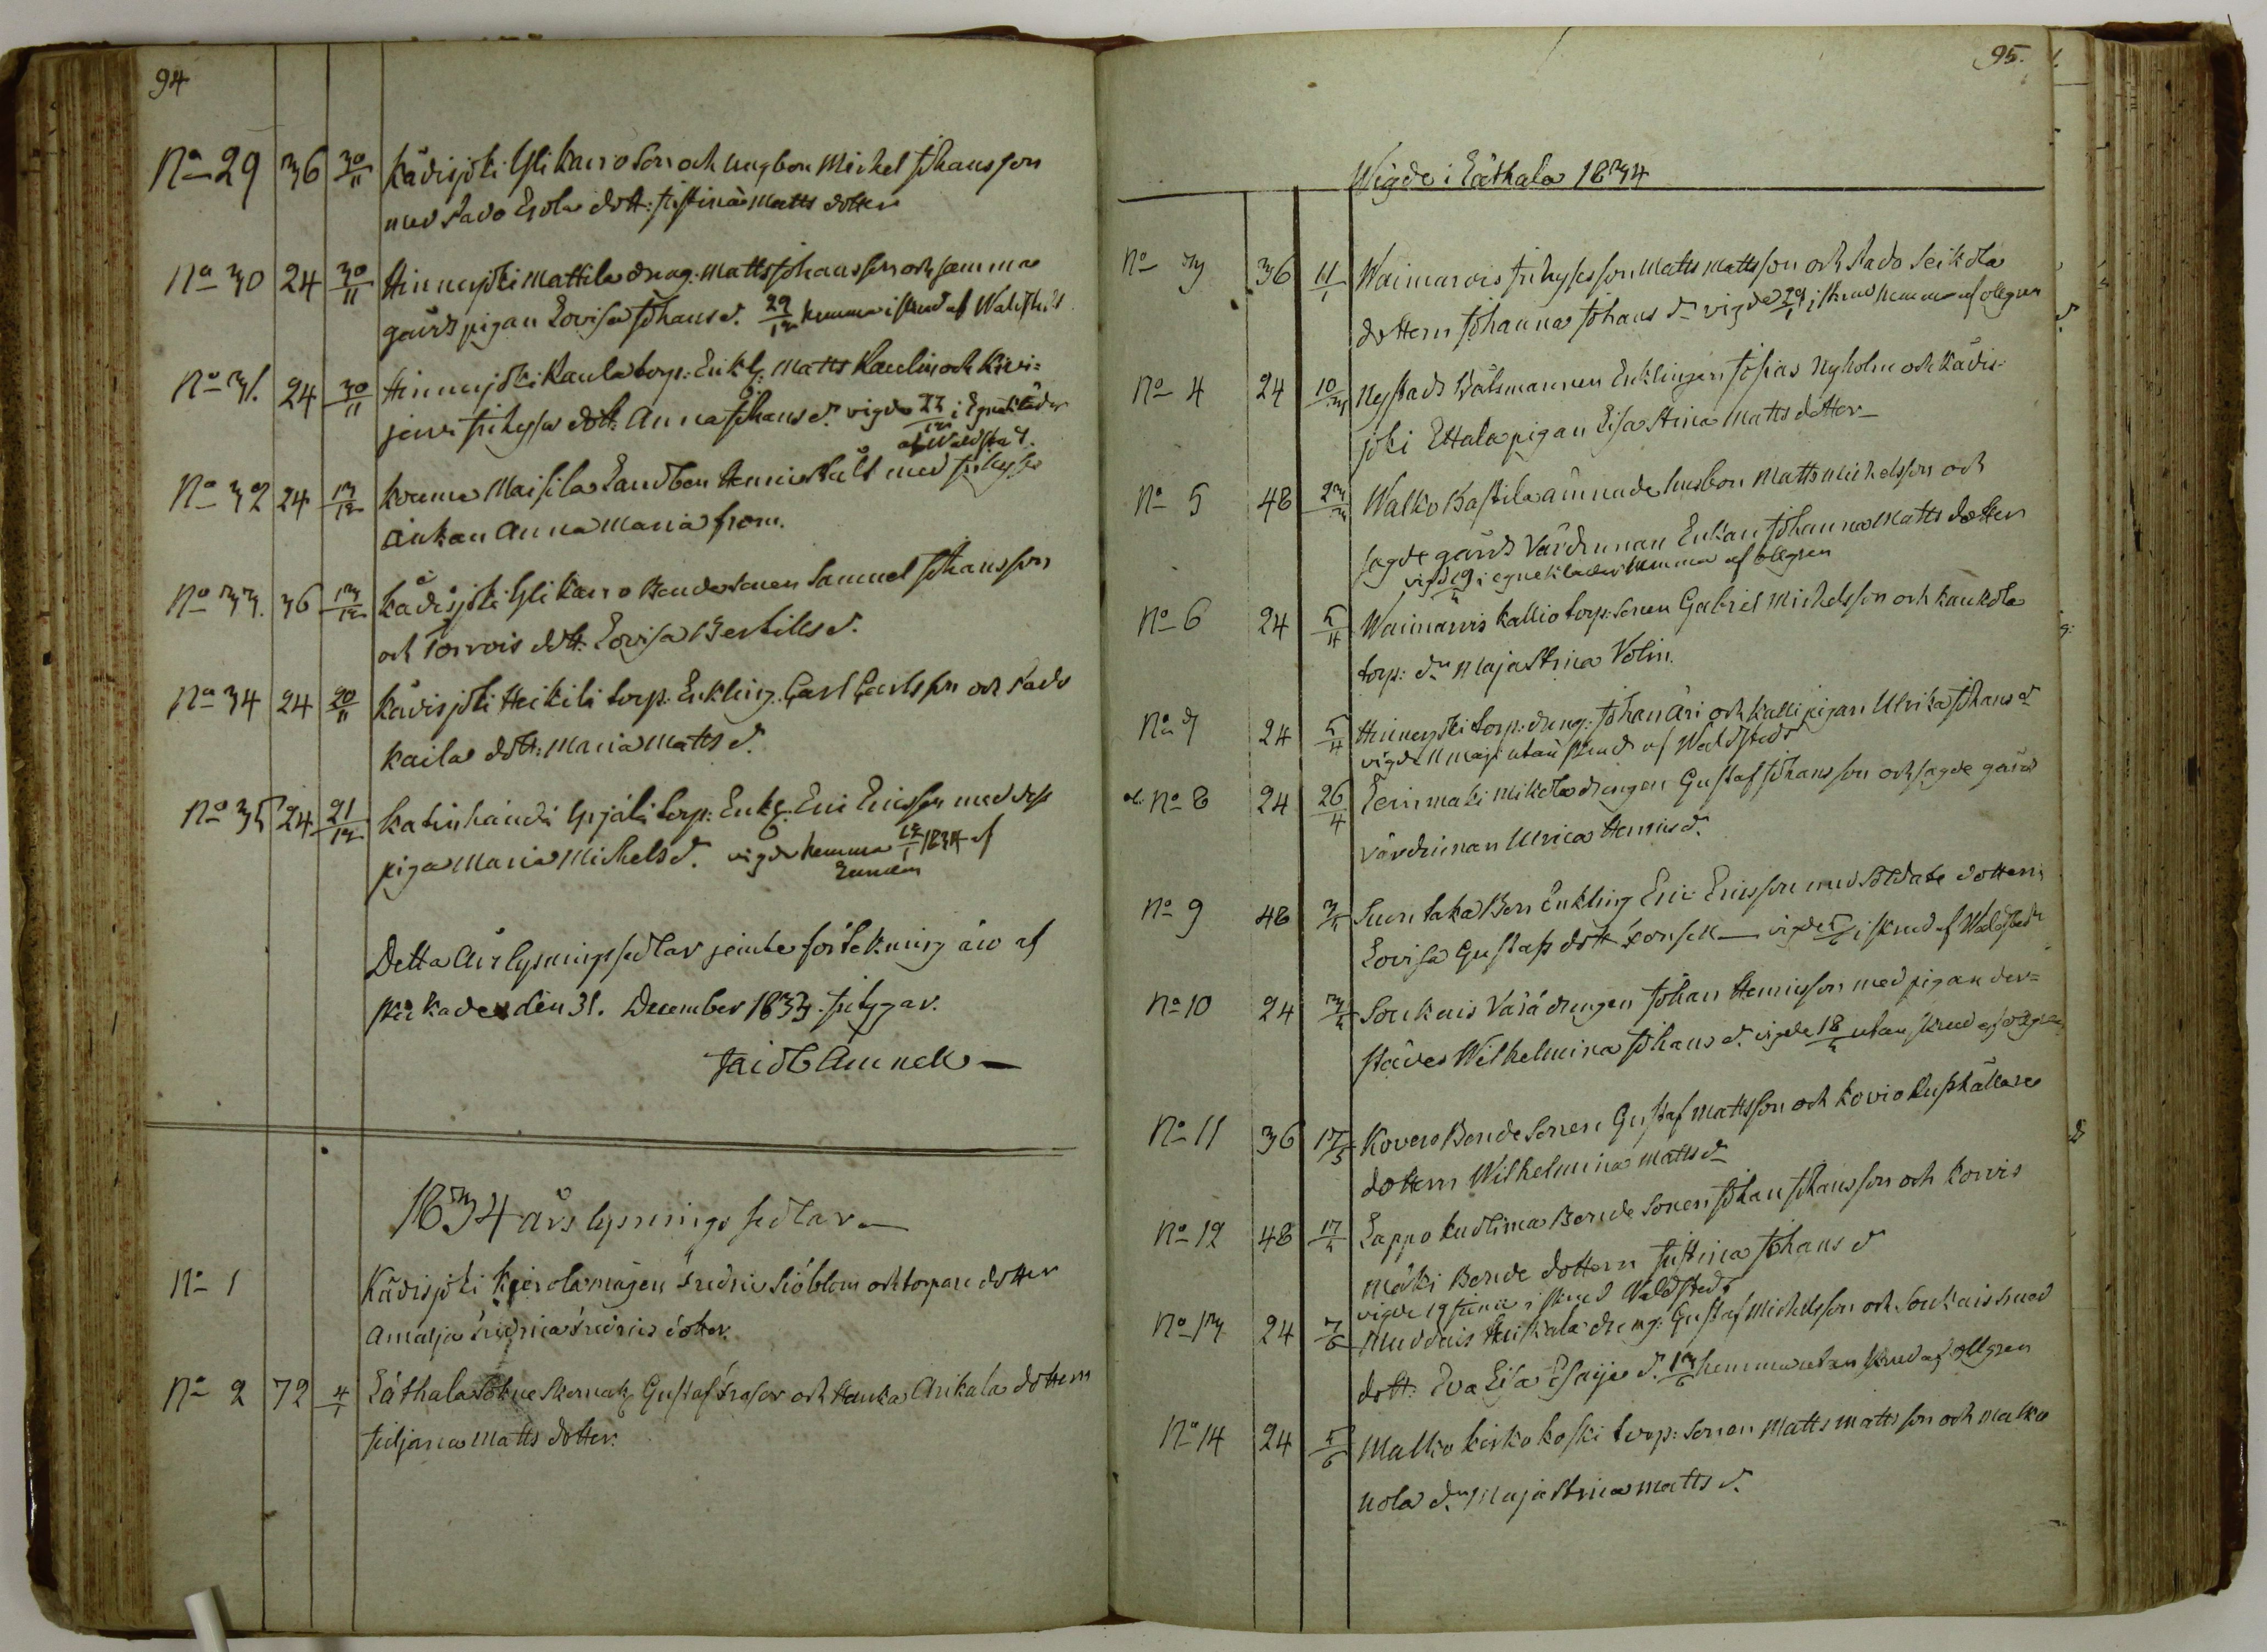 94
No 29 36 30/11 Kädisjoki Yli Karro Son och ungbon Michel Johansson
med Sado Erola dott: Justina Matts dotter
No 30 24 30/11 Hinnerjoki Mattila dreng: Matts Johansson och samma
gårds pigan Lovisa Johans d. 29/12 hemma i skrud af Waldstedt
No 31. 24 30/11 Hinnerjoki Kaula torp: Enkl: Matts Kaulin och Kivi=
jervi dott: Anna Johans d. vigde i Egna kläder
af Waldstedt.
No 32 24 13/12 Maisila Landbon Henric med
änkan Anna Maria from.
No 33. 36 13/12 Kädisjoki Yli Karro Bondesonen Samuel Johansson
och Torrois dott: Lovisa Bertills d.
No 34 24 20/11 Kädisjoki Heikilä torp: Enkling. Carl Carlsson och Sado
Kaila dott: Maria Matts d.
No 35 24 21/12 Katinhändä Yrjälä torp: Enkl: Eric Ericsson med dess
piga Maria Michels d. vigde hemma 12/1 1834 af
Detta års lysnings sedlar jemte förtekning äro af
skickade den 31. December 1833.
1834 års lysnings sedlar
No 1 Kädisjoki Kierola mågen Fredric Siöblom och torpare dotter
Amalja Fredrica Fredrics dotter.
No 2 72 4/1 Läthala Sokne Gustaf och Hanka Arikala dottern
Juljana Matts dotter.
95.
Wigde i Läthala 1834
No 3 36 11/1 Waimarois son Matts Mattsson och Sado Seikola
dottern Johanna Johans d. vigde 29/1 i skrud hemma af ollgren
No 4 24 10/3 Nystads Båtsmannen Enklingen Josias Nyholm och Kädis-
joki Ettala pigan Lisa Stina Matts dotter
No 5 48 23/3 Walko Bastila ämnade husbon Matts Michelsson och
sagde gårds Värdinnan Enkan Johanna Matts dotter
vigd 19/4 i egne kläder hemma af ollgren
No 6 24 5/4 Waimarois Kallio torp: sonen Gabriel Michelsson och Kaukola
torp: dn Maja Stina Volin.
No 7 24 5/4 Hinnerjoki torp: dreng: Johan Äri och Kalli pigan Ulrika Johans d
vigde 11 maji utan skrud af Waldstedt
No 8 24 26/4 Leinmäki Mikola drengen Gustaf Johansson och sagde gårds
värdinnan Ulrica Henrics d.
No 9 48 3/5 Suontaka Bon Enkling Eric Ericsson med Soldate dottern
Lovisa Gustafs dott Forsell vigde 5/6 i skrud af Waldstedt
No 10 24 3/5 Soukais Vasa drengen Johan Henricsson med pigan der=
städes Wilhelmina Johans d. vigde 18/5 utan skrud af ollgren
No 11 36 17/5 Kovero Bonde Sonen Gustaf Mattsson och Kovio Rusthållare
dottern Wilhelmina Matts d
No 12 48 17/5 Lappo Kudlima Bonde Sonen Johan Johansson och Korvis
Mäki Bonde dottern Justina Johans d
vigde 19 Junii i skrud Waldstedt
No 13 24 7/6 Muddais Heikala dreng: Gustaf Michelsson och Soukais smed
dott: Eva Lisa Esaije d. 13/6 hemma utan skrud af ollgren
No 14 24 5/6 Malko Kirkokoski torp: sonen Matts Mattsson och Malko
Uola dn Maja Stina Matts d.